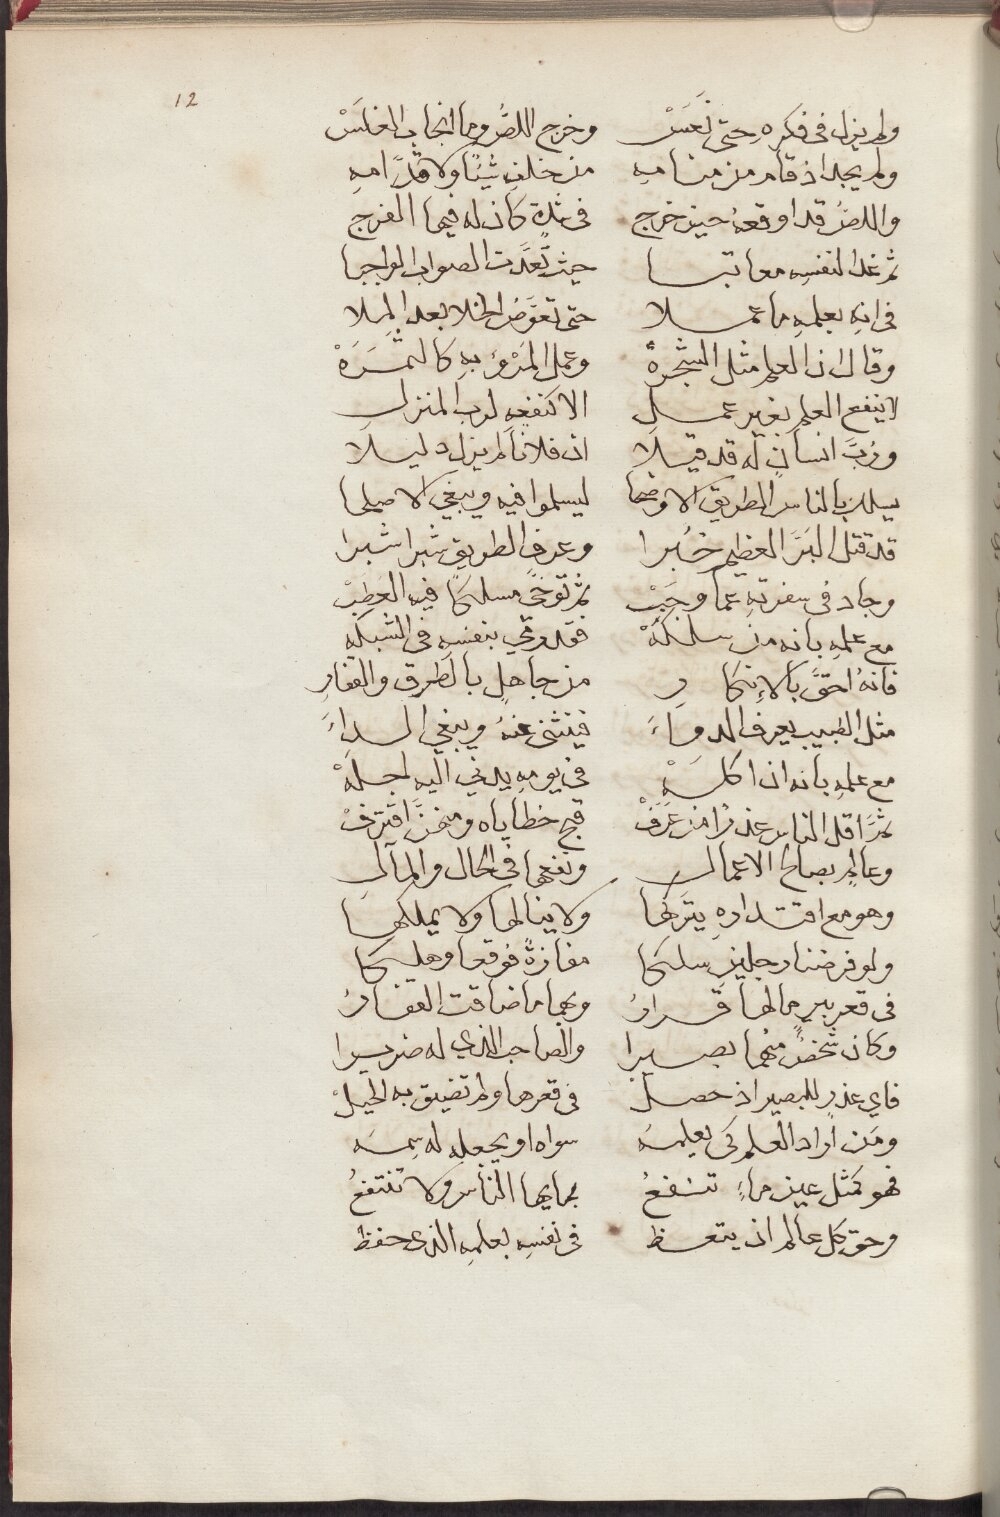 12
ولم يزل في فكره حتى نَعَسْ وخرج اللصُّ وما انجاب الغلَسْ
ولم يجد اذ قام من منامه من خلفِ شيئًا ولا قدّامه
واللصُّ قد اوقعهُ حين خرج في شدةٍ كان له فيها الفرج
ثم غدا لنفسهِ معاتبا حيث تعدَّت الصواب الواجبا
في انه بعلمهِ ما عملا حتى تعوَّض الخلا بعد الملا
وقال ان العلم مثل الشجرةْ وعمل المَرْءِ بهِ كالثمَرَةْ
لا ينفع العلم بغير عملِ الا كنفعهِ لرب المنزل
ورُبَّ انسانٍ له قد قيلا ان فلانًا لم يزل دليلا
يسلك بالناس الطريق الاوضحا ليسلموا فيه ويبغي الاصلحا
قد قتل البَرَّ العظيم خُبرا وعرف الطريق شبرا شبرا
وحاد في سفرتهِ عما وجَبْ ثم توخَّى مسلكًا فيه العطبْ
مع علمهِ بانه من سلكَهْ فقد رُمي بنفسه في الشبكه
فانهُ احقُّ بالانكارِ من جاهلٍ بالطرق والقفارِ
مثل الطبيب يعرف الدواءَ فينثني عنهُ ويبغي الداءَ
مع علمهِ بانه ان اكلَهْ في يومهِ يدني اليه اجلَهْ
ثمَّ اقل الناس عذرًا من عَرَفْ قبح خطاياه ومنهنَّ اقترفْ
وعالمٍ بصالح الاعمال ونفعها في الحال والمآل
وهو مع اقتدارهِ يتركها ولا ينالها ولا يملكها
ولو فرضنا رجلين سلكا مفازةً فوقعا وهلكا
في قعر بيرٍ ما لها قرارُ وبهما ضاقت القفارُ
وكان شخصٌ منهما بصيرا والصاحب الذي له ضريرا
فاي عذرٍ للبصير اذ حصلْ في قعرها ولم تضيق به الحيلْ
ومَن اراد العلم كَي يعلمَه سواه او يجعله له سِمَه
فهو كمثل عين ماءٍ تنفعُ بمايها الناس ولا تنتفعُ
وحق كل عالم ان يتعظ في نفسهِ بعلمهِ الذي حفظ